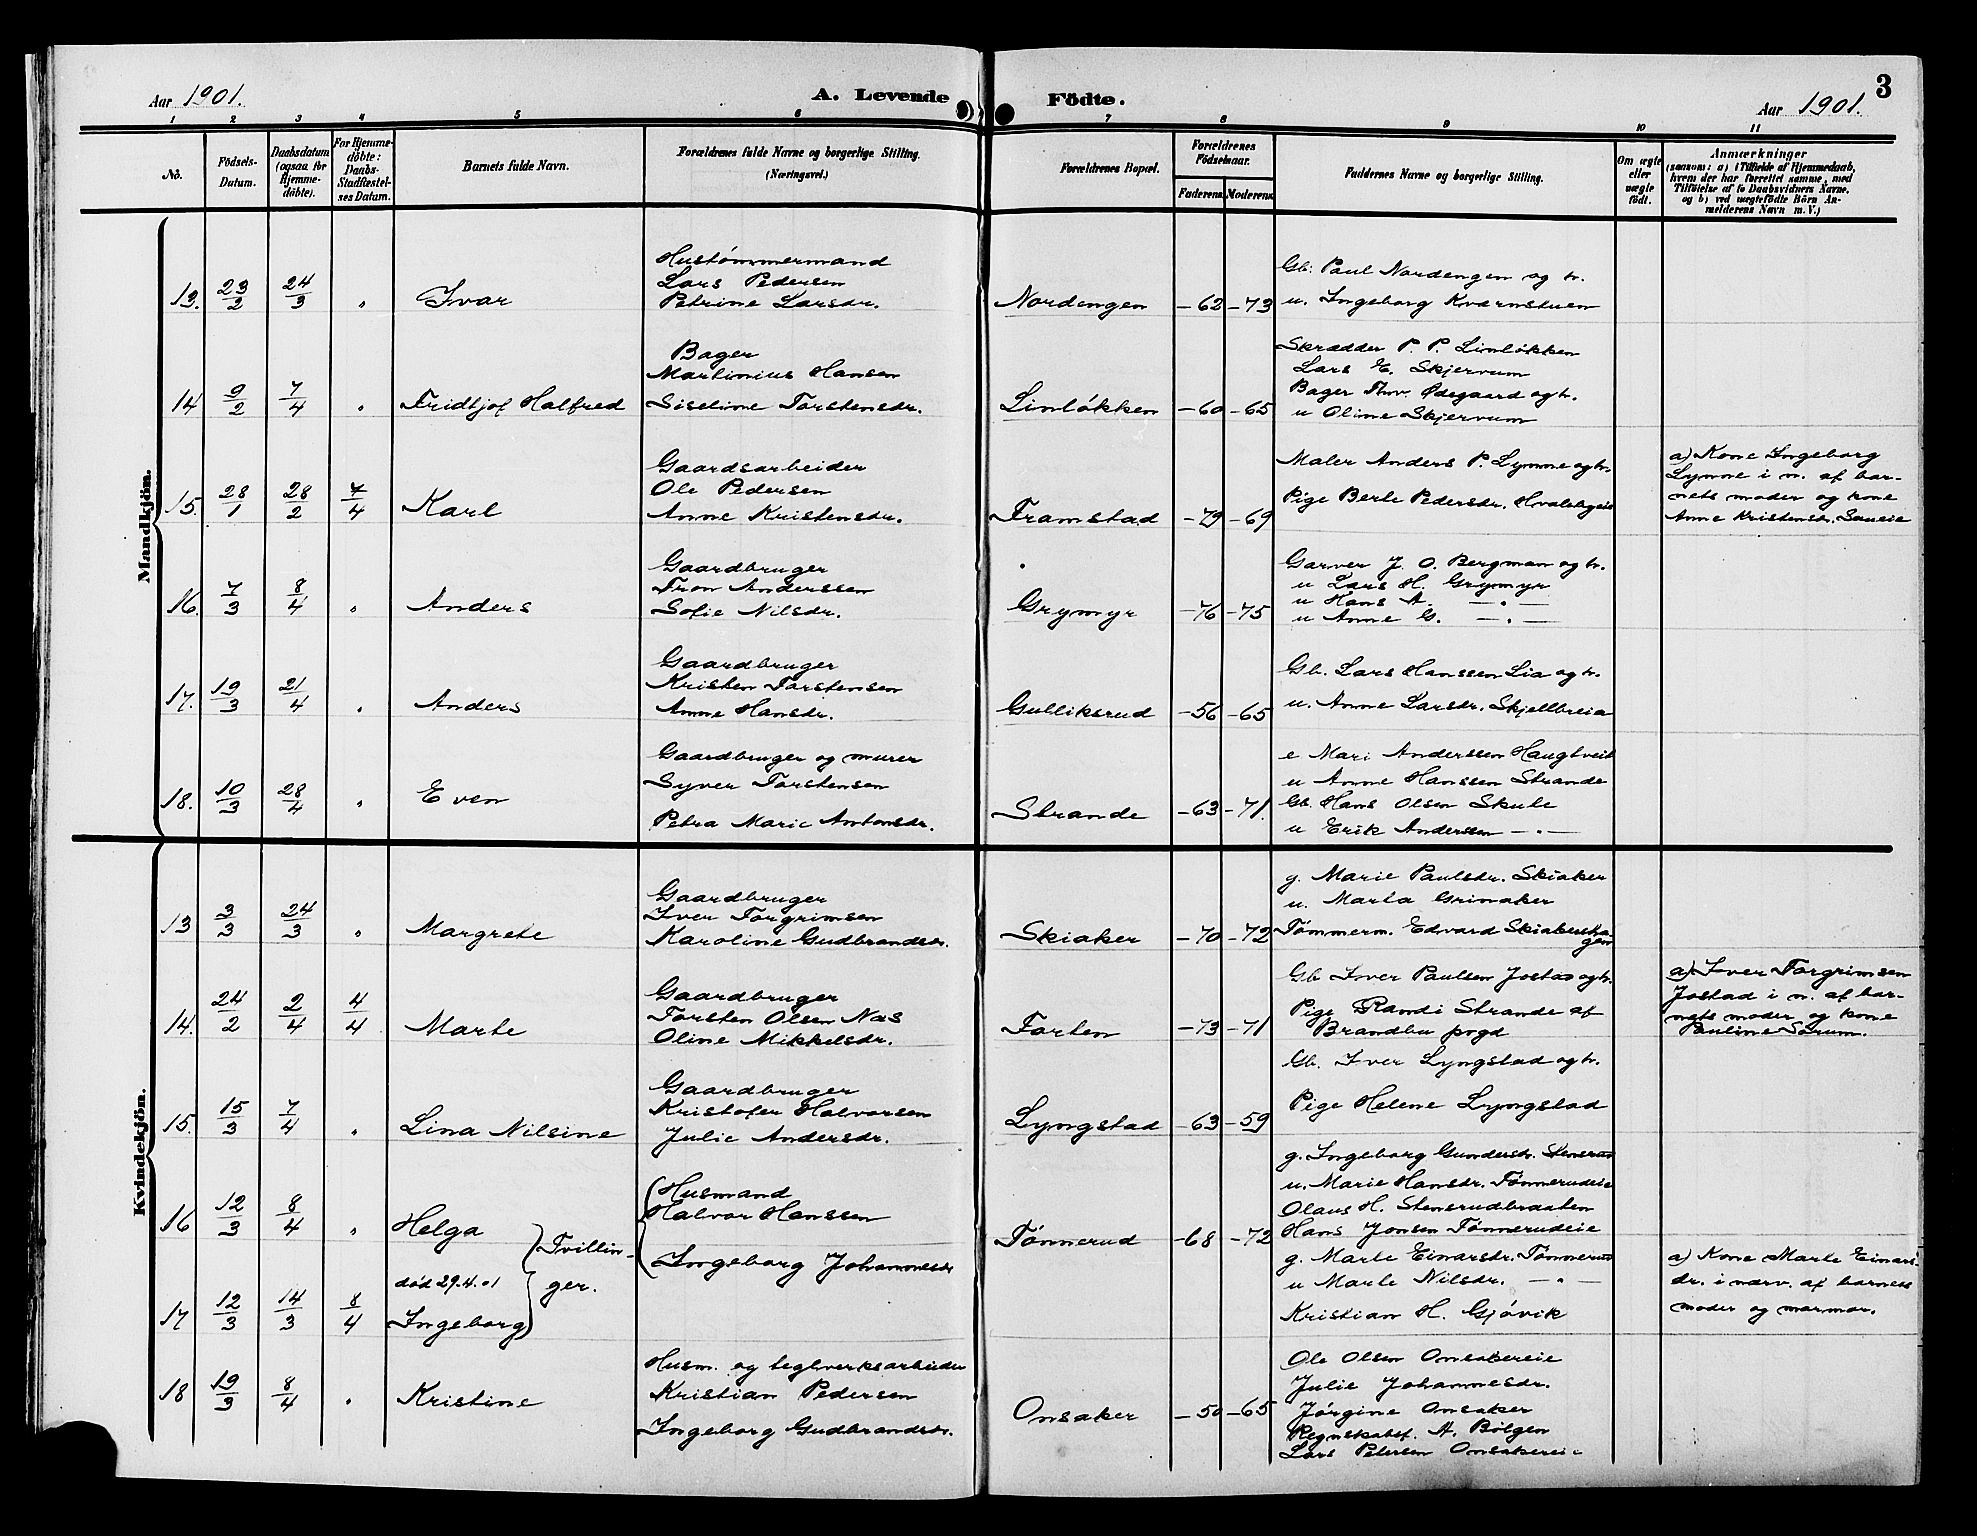 Aar 1901.
A. Levende Födte.
3
Aar 1901.
1 2 3 4 5 6 7 8 9 10 11
No.
Födsels-Datum.
Daabsdatum (ogsaa for Hjemme-döbte).
For Hjemme-döbte: Daabs-Stadfæstel-ses Datum.
Barnets fulde Navn.
Forældrenes fulde Navne og borgerlige Stilling.
(Næringsvei.)
Forældrenes Bopæl.
Forældrenes Födselsaar.
Faderens. Moderens.
Faddernes Navne og borgerlige Stilling.
Om ægte eller uægte födt.
Anmærkninger
(saasom: a) i Tilfælde af Hjemmedaab,
hvem der har forrettet samme, med
Tilföielse af to Daabsvidners Navne.
og b) ved uægtefödte Börn An-
melderens Navn m. V.)
Mandkjön.
13. 23/2 24/3 " Ivar
Hustømmermand
Lars Pedersen
Petrine Larsdr.
Nordengen -62 -73
Gb. Paul Nordengen og h.
u. Ingeborg Kværnstuen
14 9/2 7/4 " Fridtjof Halfred
Bager
Martinius Hansen
Siseline Torstensdr.
Linløkken -60 -65
Skrædder P. P. Linløkken
Lars E. Skjervum
Bager Thv. Ødegaard og h.
u Oline Skjervum
15. 28/1 28/2 7/4 Karl
Gaardsarbeider
Ole Pedersen
Anne Kristensdr.
Framstad -79 -69
Maler Anders P. Lynne og h.
Pige Berte Pedersdr. Hvalebyeie
a) Kone Ingeborg
Lynne i n. af bar-
nets moder og kone
Anne Kristensdr.
16. 7/3 8/4 " Anders
Gaardbruger
Tron Anderssen
Sofie Nilsdr.
Grymyr -76 -75
Garver J. O. Bergman og h.
u Lars H. Grymyr
u Hans A. — " —
u Anne G. — " —
17. 19/3 21/4 " Anders
Gaardbruger
Kristen Torstensen
Anne Hansdr.
Gulliksrud -56 -65
Gb. Lars Hanssen Lia og h.
u. Anne Larsdr. Skjellbreia
18. 10/3 28/4 " Even
Gaardbruger og murer
Syver Torstensen
Petra Marie Antonsdr.
Strande -63 -71.
e Mari Anderssen Haugtveit
u Anne Hanssen Strande
Gb. Hans Olsen Skule
u Erik Andersen — " —
Kvindekjön.
13 3/3 24/3 " Margrete
Gaardbruger
Iver Torgrimsen
Karoline Gudbrandsdr.
Skiaker -70 -72
g. Marie Paulsdr. Skiaker
u. Marta Grinaker
Tømmerm. Edvard Skiakershagen
14. 24/2 2/4 4/4 Marte
Gaardbruger
Torsten Olsen Næs
Oline Mikkelsdr.
Forten -73 -71
Gb Iver Paulsen Jostad og h.
Pige Randi Strande af
Brandbu prgd
a) Iver Torgrimsen
Jostad i n. af bar-
nets moder og kone
Pauline Sørum.
15. 15/3 7/4 " Lina Nilsine
Gaardbruger
Kristofer Halvorsen
Julie Andersdr.
Lyngstad -63 -59
Gb. Iver Lyngstad og h.
Pige Helene Lyngstad
16 12/3 8/4 " Helga
død 29.4.01
17 12/3 14/3 8/4 Ingeborg
Tvillin-
ger.
Husmand
Halvor Hanssen
Ingeborg Johannesdr
Tønnerud -68 -72
g. Ingeborg Gundersdr. Stensrud
u. Marie Hansdr. Tønnerudeie
Olaus H. Stensrudbraaten
Hans Jonsen Tønnerudeie
g. Marte Einarsdr. Tønnerud
u Marte Nilsdr. — " —
Kristian H. Gjøvik
a) Kone Marte Einars-
dr. i nærv. af barnets
moder og mormor.
18 19/3 8/4 " Kristine
Husm. og teglverksarbeider
Kristian Pedersen
Ingeborg Gudbrandsdr.
Onsaker -50 -65
Ole Olsen Onsakereie
Julie Johannesdr.
Jørgine Onsaker
Regnskabsf. A. Bølgen
Lars Petersen Onsakereie